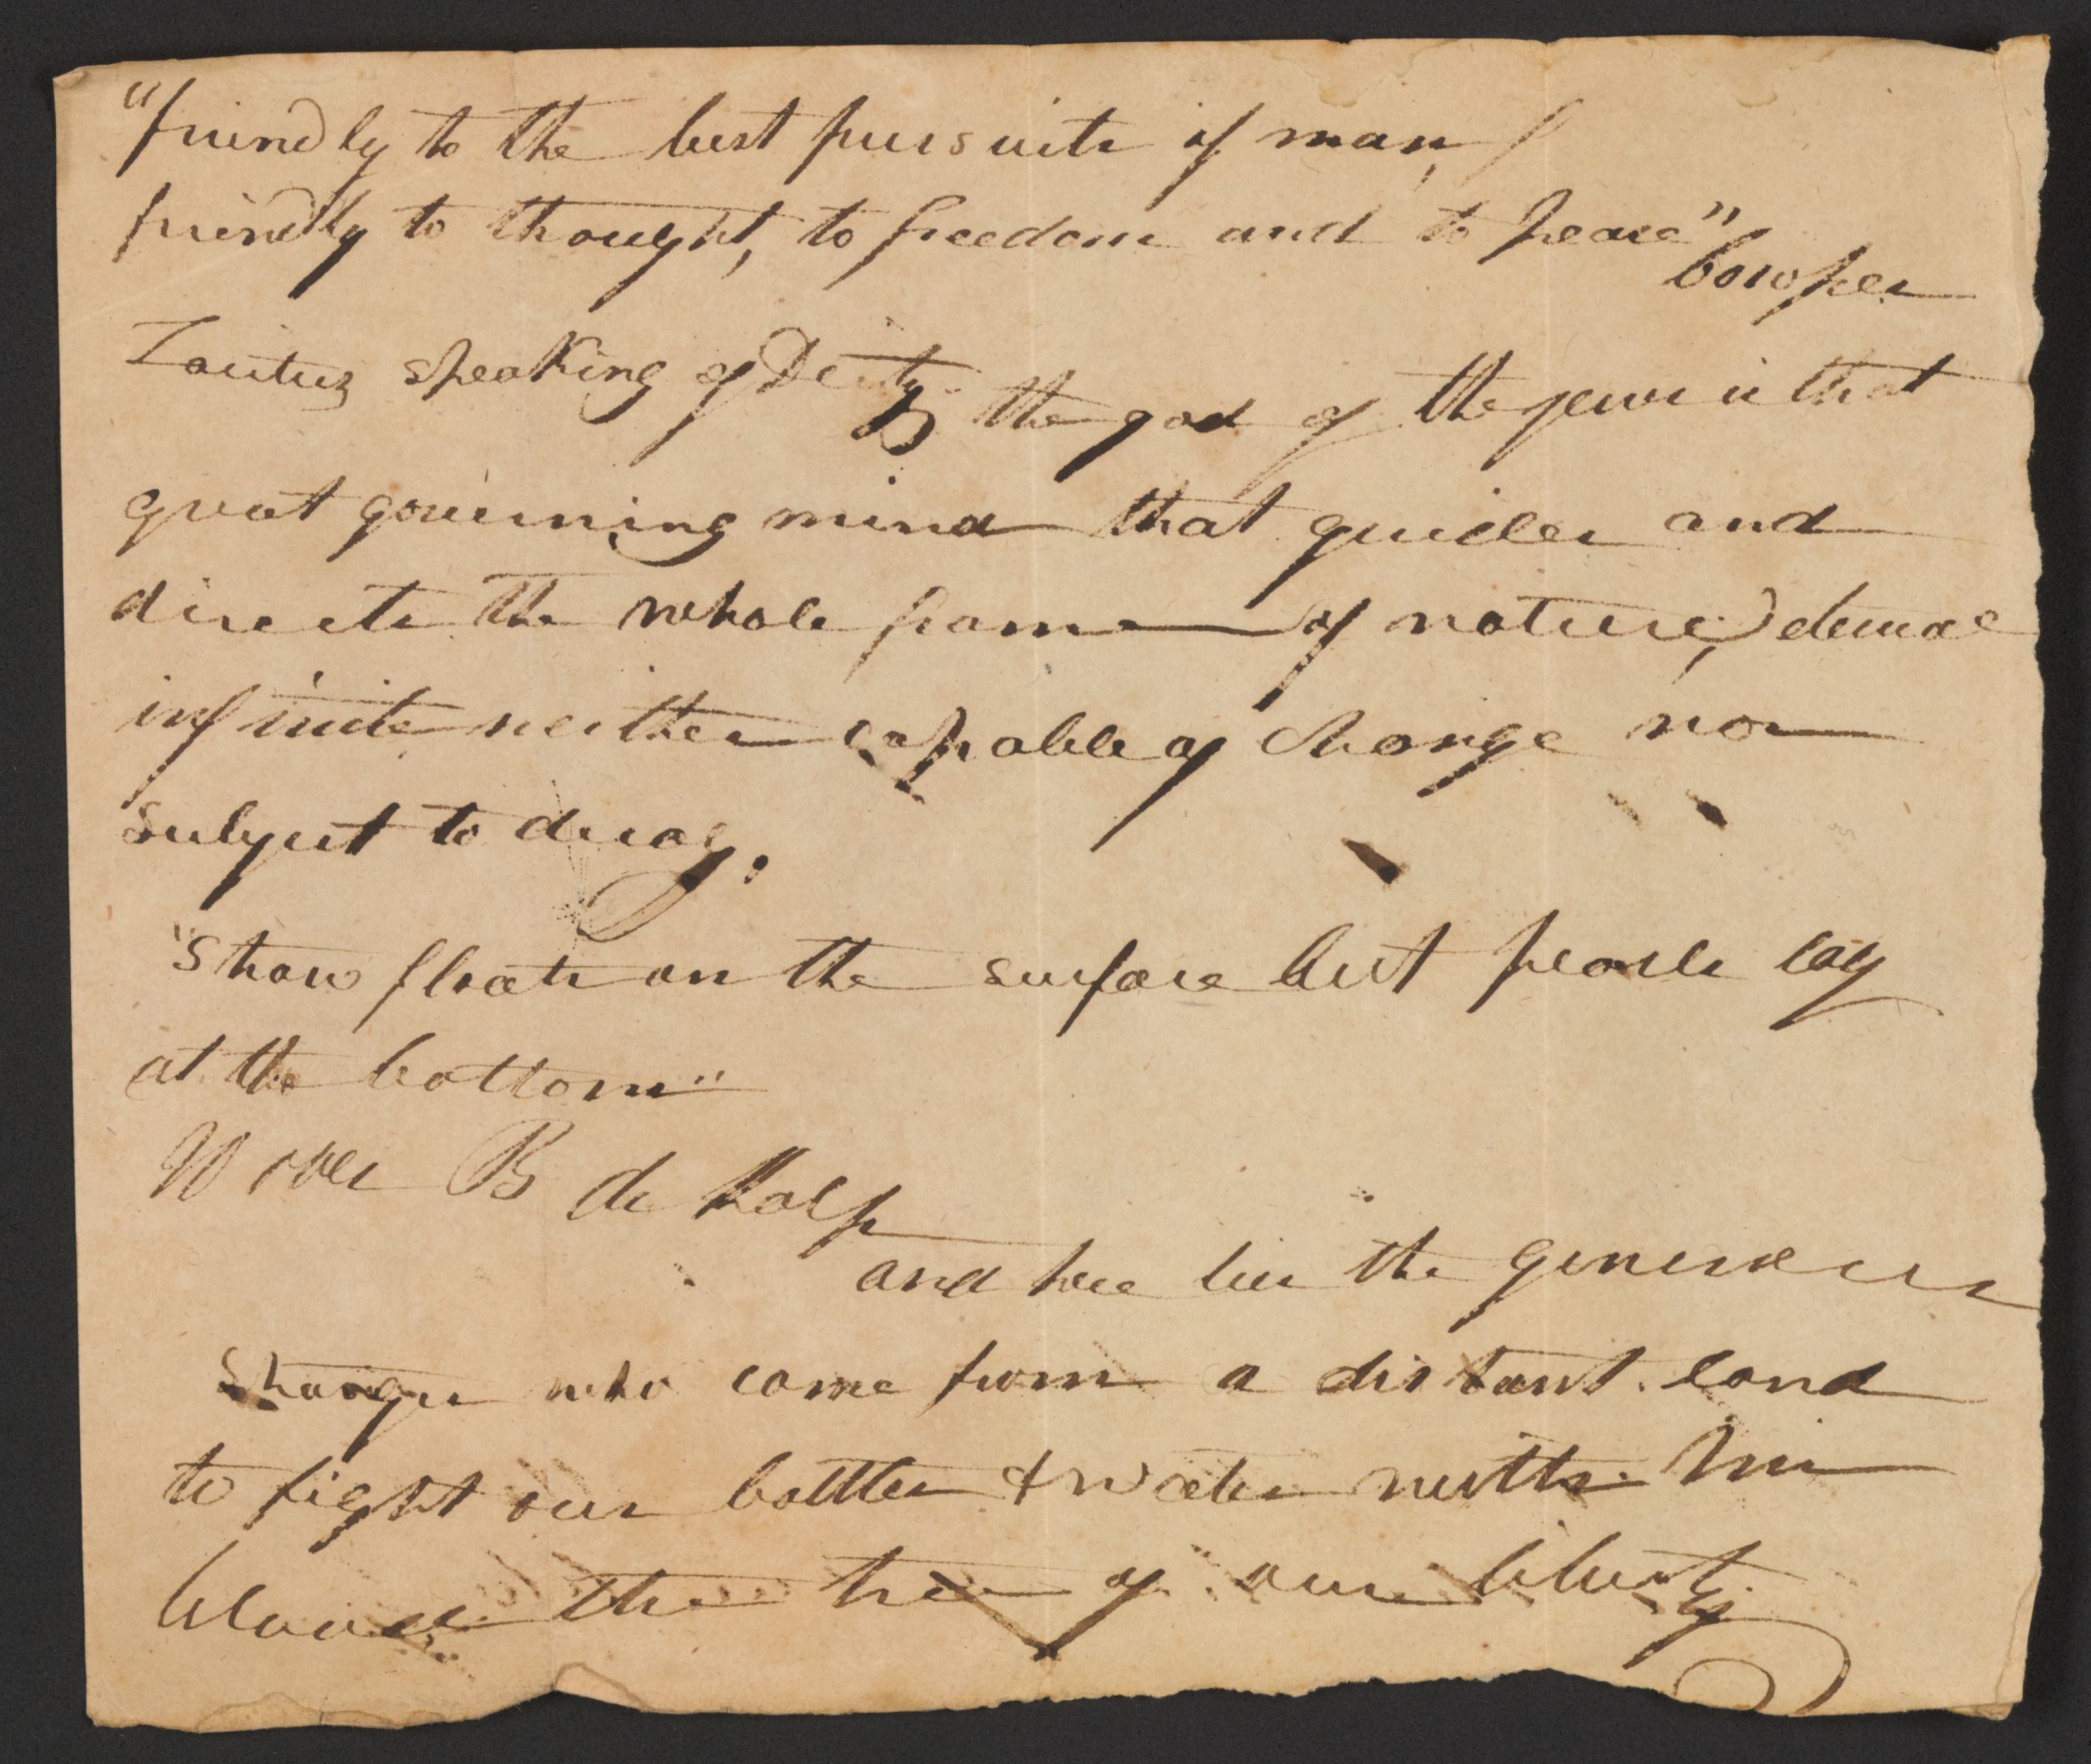 "friendly to the best pursuits of man,
friendly to thought, to freedom and to peace"
Cowper
Tacitus speaking of Deity the god of the jews is that
great governing mind that guides and
directs the whole frame of nature,
infinite neither capable of change nor
subject to decay.
"Straw floats on the surface but pearls lay
at the bottom"
W over B de Kalb
and here lies the generous
stranger who came from a distant land
to fight our battles & water with his
blood the tree of our liberty